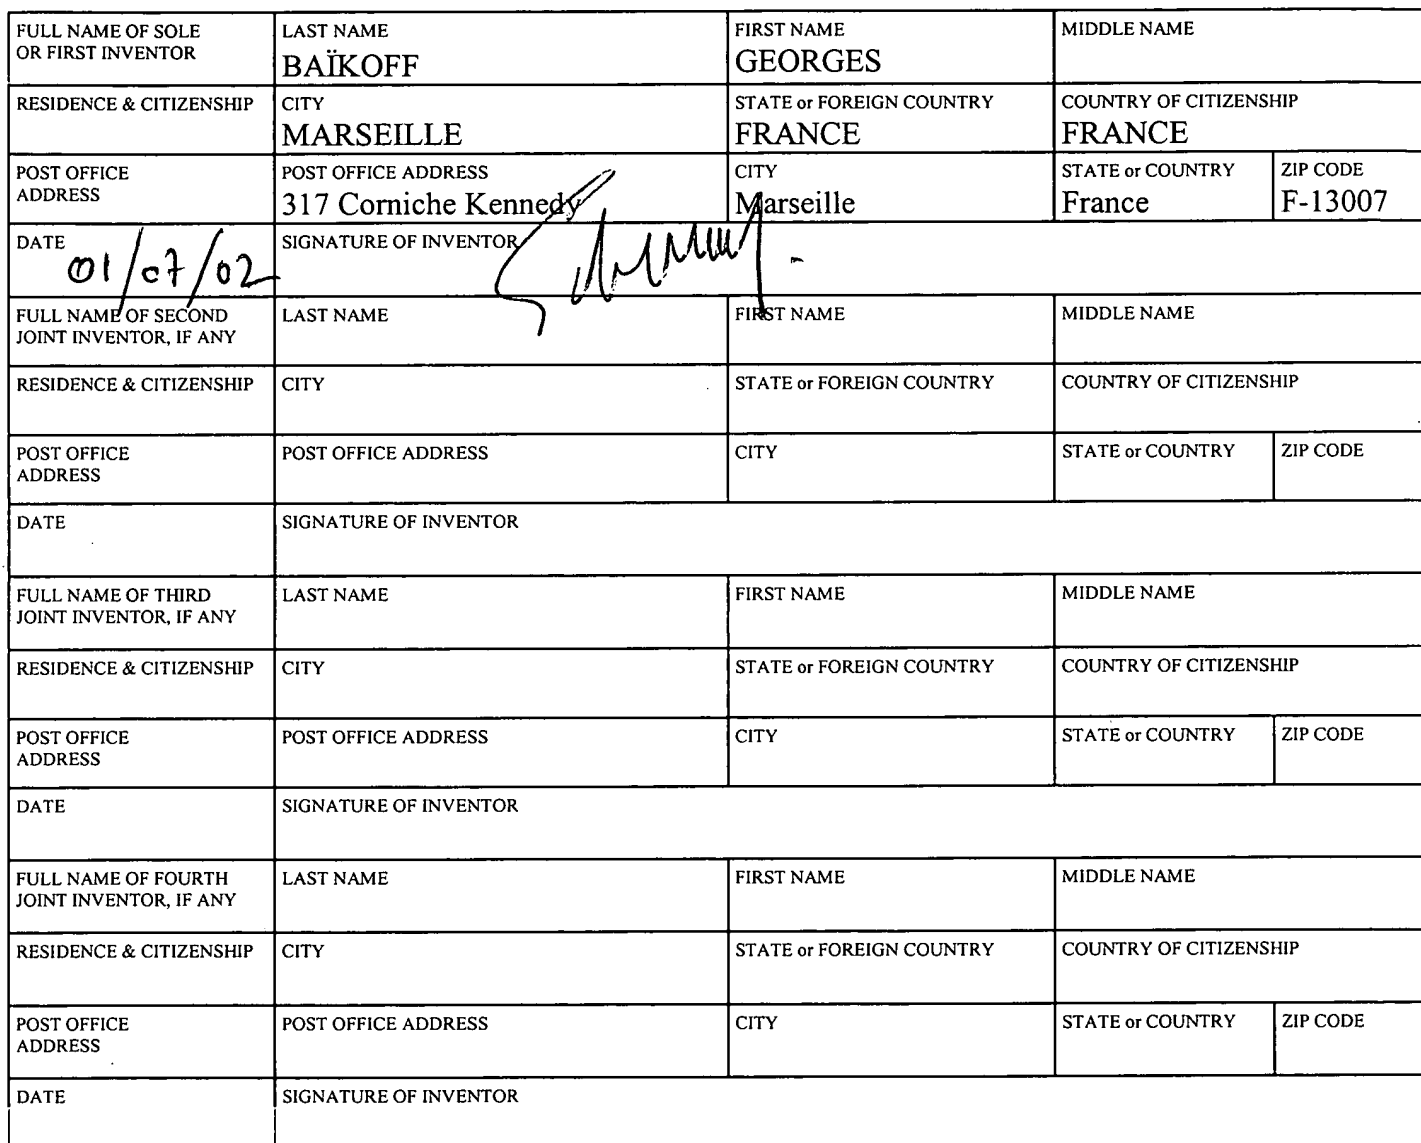 FULL NAME OF SOLE OR FIRST INVENTOR LAST NAME FIRST NAME MIDDLE NAME
BAÏKOFF GEORGES
RESIDENCE & CITIZENSHIP CITY STATE or FOREIGN COUNTRY COUNTRY OF CITIZENSHIP
MARSEILLE FRANCE FRANCE
POST OFFICE ADDRESS POST OFFICE ADDRESS CITY STATE or COUNTRY ZIP CODE
317 Corniche Kennedy Marseille France F-13007
DATE SIGNATURE OF INVENTOR
01/07/02
FULL NAME OF SECOND JOINT INVENTOR, IF ANY LAST NAME FIRST NAME MIDDLE NAME
RESIDENCE & CITIZENSHIP CITY STATE or FOREIGN COUNTRY COUNTRY OF CITIZENSHIP
POST OFFICE ADDRESS POST OFFICE ADDRESS CITY STATE or COUNTRY ZIP CODE
DATE SIGNATURE OF INVENTOR
FULL NAME OF THIRD JOINT INVENTOR, IF ANY LAST NAME FIRST NAME MIDDLE NAME
RESIDENCE & CITIZENSHIP CITY STATE or FOREIGN COUNTRY COUNTRY OF CITIZENSHIP
POST OFFICE ADDRESS POST OFFICE ADDRESS CITY STATE or COUNTRY ZIP CODE
DATE SIGNATURE OF INVENTOR
FULL NAME OF FOURTH JOINT INVENTOR, IF ANY LAST NAME FIRST NAME MIDDLE NAME
RESIDENCE & CITIZENSHIP CITY STATE or FOREIGN COUNTRY COUNTRY OF CITIZENSHIP
POST OFFICE ADDRESS POST OFFICE ADDRESS CITY STATE or COUNTRY ZIP CODE
DATE SIGNATURE OF INVENTOR